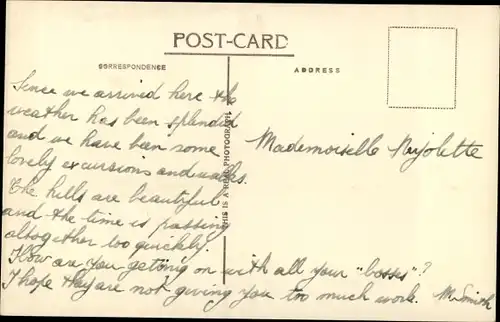 POST-CARD
CORRESPONDENCE
ADDRESS
Since we arrived here the
weather has been splendid
and we have been some
lovely excursions and walks.
The hills are beautiful
and the time is passing
altogether too quickly.
How are you getting on with all your "bosses"?
I hope they are not giving you too much work. M. Smith
THIS IS A REAL PHOTOGRAPH
Mademoiselle